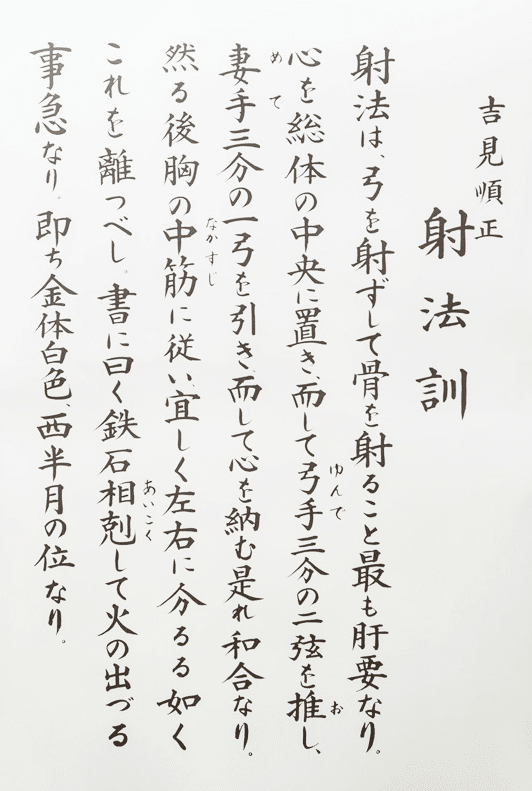 吉見順正
射法訓
射法は、弓を射ずして骨を射ること最も肝要なり。
ゆんで
お
心を総体の中央に置き、而して弓手三分の二弦を推し、
めて
妻手三分の一弓を引き、而して心を納む是れ和合なり。
なかすじ
然る後胸の中筋に従い、宜しく左右に分るる如く
あいこく
これを離つべし。書に曰く鉄石相剋して火の出づる
事急なり。即ち金体白色、西半月の位なり。